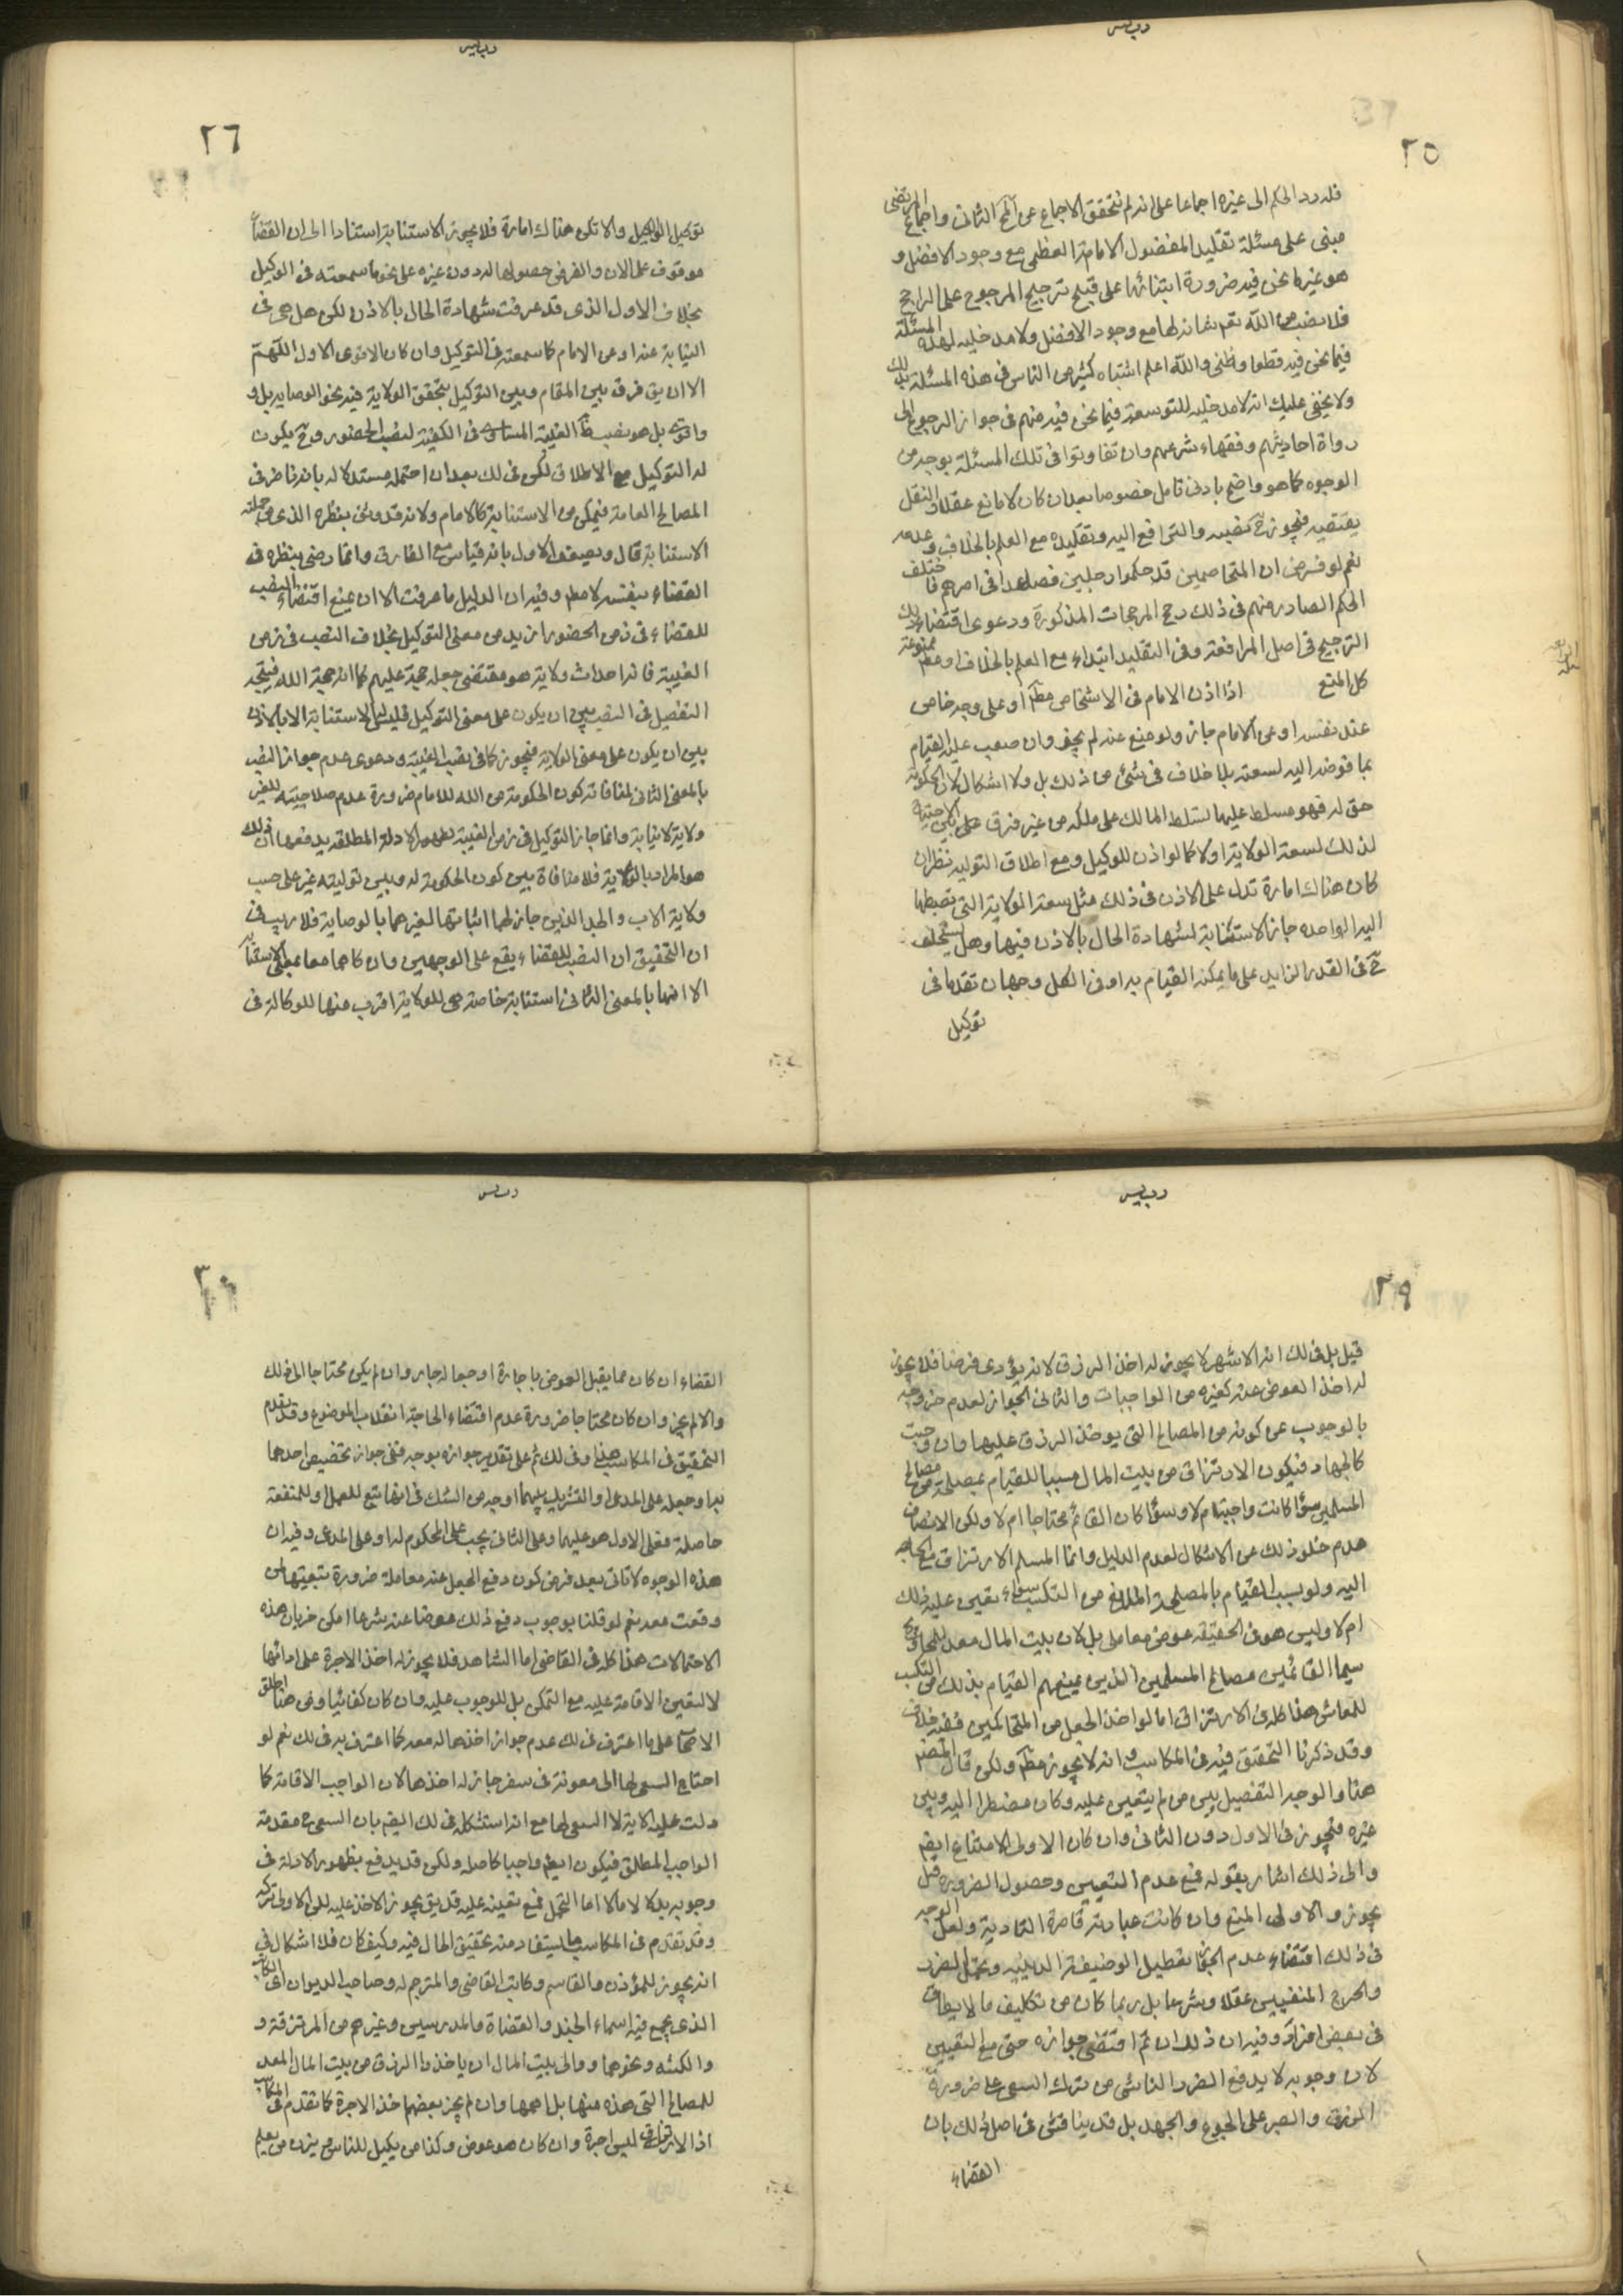 ٢٥
فله رد الحكم الى غيره اجماعا على انه لم نتحقق الاجماع عن المحقق الثانى واجماع المرتضى
مبنى على مسئلة تقليد المفضول الامامة العظمى مع وجود الافضل و
هو غير ما نحن فيه ضرورة ابتنائها على قبح ترجيح المرجوح على الراجح
فلا نصب من الله تعم شانه لها مع وجود الافضل ولا مدخلية لهذه المسئلة
فيما نحن فيه قطعا وظنى والله اعلم اشتباه كثير من الناس فى هذه المسئلة بذلك
ولا يخفى عليك انه لا مدخلية للتوسعة فيما نحن فيه منهم فى جواز الرجوع الى
رواة احاديثهم وفقهاء شرعهم وان تفاوتوا فى تلك المسئلة بوجه من
الوجوه كما هو واضح بادنى تامل خصوصا بعد ان كان لا مانع عقلا والنقل
يقتضيه فيجوز ح نصبه والترافع اليه وتقليده مع العلم بالخلاف وعدمه
نعم لو فرض ان المتخاصمين قد حكموا رجلين فصاعدا فى امرهم فاختلف
الحكم الصادر منهم فى ذلك رجح المرجحات المذكورة ودعوى اقتضاء ذلك
الترجيح فى اصل المرافعة وفى التقليد ابتداء مع العلم بالخلاف او مطم ممنوعة
كل المنع اذا اذن الامام فى الاستخلاف مطم او على وجه خاص
عنه نفسه او عن الامام جاز ولو منع عنه لم يجز وان صعب عليه القيام
بما فوضه اليه لسعته بلا خلاف فى شئ من ذلك بل ولا اشكال لان الحكومة
حق له فهو مسلط عليها تسلط المالك على ملكه من غير فرق
لذلك لسعة الولاية او لا كما لو اذن للوكيل ومع اطلاق التولية نظر ان
كان هناك امارة تدل على الاذن فى ذلك مثل سعة الولاية التى تضبطها
اليد الواحده جاز الاستنابة لشهادة الحال بالاذن فيها وهل يستخلف
ح فى القدر الزايد على ما يمكنه القيام به او فى الكل وجهان تقدما فى
توكيل
٢٦
توكيل الوكيل والا تكن هناك امارة فلا يجوز الاستنابة استنادا الى ان القضاء
موقوف على الاذن والفرض حصولها له دون غيره على نحو ما سمعته فى الوكيل
بخلاف الاول الذى قد عرفت شهادة الحال بالاذن لكن هل هى فى
النيابة عنه او عن الامام كما سمعته فى التوكيل وان كان الاقوى الاول اللهم
الا ان يق فرق بين المقام وبين التوكيل بتحقق الولاية فيه نحو الوصاية بل و
واقوى بل هو نصب الغيبة المساوى فى الكيفية لنصب الحضور وح يكون
له التوكيل مع الاطلاق لكن فى لك بعد ان احتمله مستدلا له بانه ناظر فى
المصالح العامة فيمكن من الاستنابة كالامام ولانه قد وثق بنظره الذى من جملته
الاستنابة قال ويضعف الاول بانه قياس مع الفارق وانما رضى بنظره فى
القضاء بنفسه لا مطم وفيه ان الدليل ما عرفت الا ان يمنع اقتضاء النصب
للقضاء فى زمن الحضور ازيد من معنى التوكيل بخلاف النصب فى زمن
الغيبة فانه احداث ولاية هو مقتضى جعله حجة عليهم كما انه حجة الله فيتجه
التفصيل فى النصب بين ان يكون على معنى التوكيل فليس له الاستنابة الا بالاذن
بين ان يكون على معنى الولاية فيجوز كما فى نصب الغيبة ودعوى عدم جواز النصب
بالمعنى الثانى لمنافاته كون الحكومة من الله للامام ضرورة عدم صلاحيته للغير
ولاية لا نيابة وانما جاز التوكيل فى زمن الغيبة لظهور الادلة المطلقة يدفعها ان ذلك
هو المراد بالولاية فلا منافاة بين كون الحكومة له وبين توليته غير على حسب
ولاية الاب والجد الذين جاز لهما اثباتها لغيرهما بالوصاية فلا ريب فى
ان التحقيق ان النصب للقضاء يقع على الوجهين وان كا هما معا بمعنى الاستنابة
الا انها بالمعنى الثانى استنابة خاصة هى للولاية اقرب منها للوكالة فى
٢٩
قيل بل فى لك انه الاشهر لا يجوز له اخذ الرزق لانه يؤدى فرضا فلا يجوز
له اخذ العوض عنه كغيره من الواجبات والثانى الجواز لعدم خروجه
بالوجوب عن كونه من المصالح التى يوخذ الرزق عليها وان وجبت
كالجهاد فيكون الارتزاق من بيت المال مسببا للقيام بمصلحة من مصالح
المسلمين سواء كانت واجبة ام لا وسواء كان القائم محتاجا ام لا ولكن الانصاف
عدم خلو ذلك عن الاشكال لعدم الدليل وانما المسلم الارتزاق مع الحاجه
اليه ولو بسبب القيام بالمصلحة المانع من التكسب سواء تعين عليه ذلك
ام لا وليس هو فى الحقيقه عوض معاملى بل لان بيت المال معد للمحاويج
سيما القائمين مصالح المسلمين الذين يمنعهم القيام بذلك من التكسب
للمعاش هذا كله فى الارتزاق اما لو اخذ الجعل من المتحاكمين ففيه خلاف
وقد ذكرنا التحقيق فيه فى المكاسب وانه لا يجوز مطم ولكن قال المصنف
هنا والوجه التفصيل بين من لم يتعين عليه وكان مضطرا اليه وبين
غيره فيجوز فى الاول دون الثانى وان كان الاولى الامتناع ايضم
والى ذلك اشار بقوله فمع عدم التعيين وحصول الضرورة قيل
يجوز والاولى المنع وان كانت عبارته قاصرة التادية ولعل الوجه
فى ذلك اقتضاء عدم الجواز تعطيل الوضيفة الدينيه وتحمل الضرر
والحرج المنفيين عقلا وشرعا بل ربما كان من تكليف ما لا يطاق
فى بعض افراده وفيه ان ذلك ان تم اقتضى جوازه حتى مع التعيين
لان وجوبه لا يدفع الضرر الناشى من ترك السعى على ضرورة
الرزق والصبر على الجوع والجهد بل قد يناقش فى اصل ذلك بان
القضاء
٣٠
القضاء ان كان مما يقبل العوض باجارة او جعاله جاز وان لم يكن محتاجا الى ذلك
والا لم يجز وان كان محتاجا ضرورة عدم اقتضاء الحاجة انقلاب الموضوع وقد تقدم
التحقيق فى المكاسب هنا وفى لك ثم على تقدير جوازه بوجه ففى جواز تخصيص احدهما
به او جعله على المدعى او التشريك بينهما اوجه من الشك فى انها تتبع للعمل او للمنفعة
حاصلة فعلى الاول هو عليهما وعلى الثانى يجب على المحكوم له او على المدعى وفيه ان
هذه الوجوه لا تاتى بعد فرض كون دفع الجعل عنه معاملة ضرورة تبعيتها لمن
وقعت معه نعم لو قلنا بوجوب دفع ذلك عوضا عنه شرعا امكن جريان هذه
الاحتمالات هذا كله فى القاضى اما الشاهد فلا يجوز له اخذ الاجرة على ادائها
لا لتعين الاقامة عليه مع التمكن بل للوجوب عليه وان كان كفائيا ومن هنا اطلق
الاصحاب على ما اعترف فى لك عدم جواز اخذها له معه كما اعترف به فى لك نعم لو
احتاج السعى لها الى معونة فى سفر جاز له اخذها لان الواجب الاقامة كما
دلت عليه الاية لا السعى لها مع انه استشكله فى لك ايضم بان السعى مقدمة
الواجب المطلق فيكون ايضم واجبا كاصله ولكن قد يدفع بظهور الادلة فى
وجوبه بدلا لا مالا اما التحمل فمع تعينه عليه قد يق يجوز الاخذ عليه لكن الاولى تركه
وقد تقدم فى المكاسب ما يستفاد منه تحقيق الحال فيه وكيف كان فلا اشكال فى
انه يجوز للمؤذن والقاسم وكاتب القاضى والمترجم له وصاحب الديوان اى الكاتب
الذى يجمع فيه اسماء الجند والقضاة والمدرسين وغيرهم من المرتزقة و
والكتبه ونحوهما ووالى بيت المال ان ياخذوا الرزق من بيت المال المعد
للمصالح التى هذه منها بل اهمها وان لم يجز بعضهم اخذ الاجرة كما تقدم فى المكاسب
اذ الارتزاق ليس اجرة وان كان هو عوض وكذا من يكيل للناس ويزن من يعلم